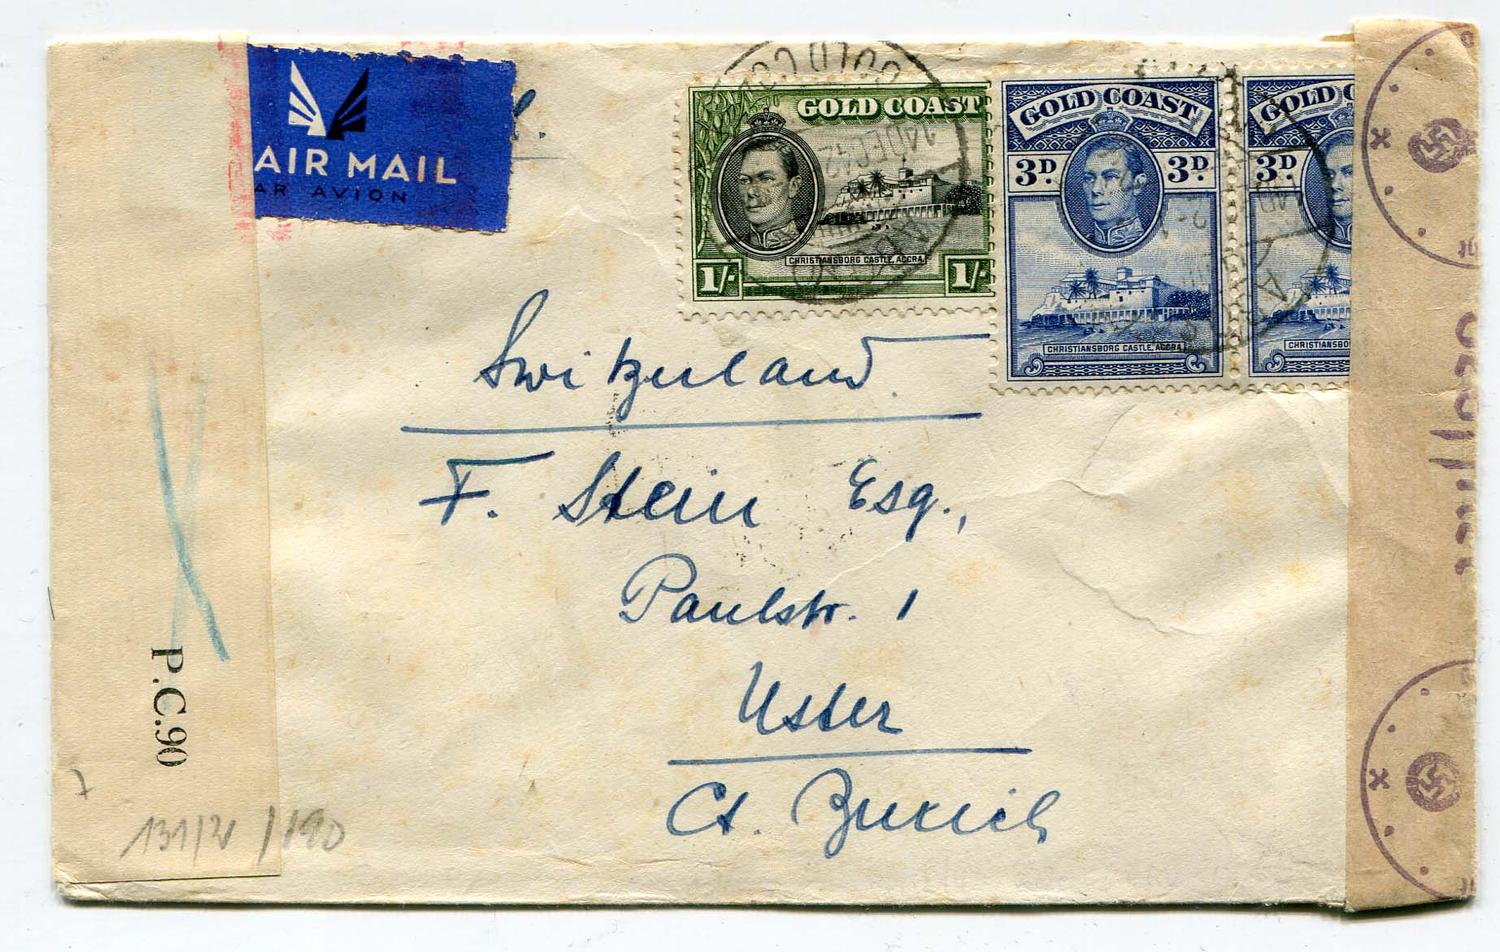 AIR MAIL
AR AVION
GOLD COAST
1/-
CHRISTIANSBORG CASTLE, ACCRA.
1/-
GOLD COAST
3D.
3D.
CHRISTIANSBORG CASTLE, ACCRA
GOLD C
3D.
CHRISTIANSBO
GOLD COA
14 DEC 42
Switzerland
F. Stein Esq.,
Paulstr. 1
Uster
Ct. Zurich
P.C.90
x
x